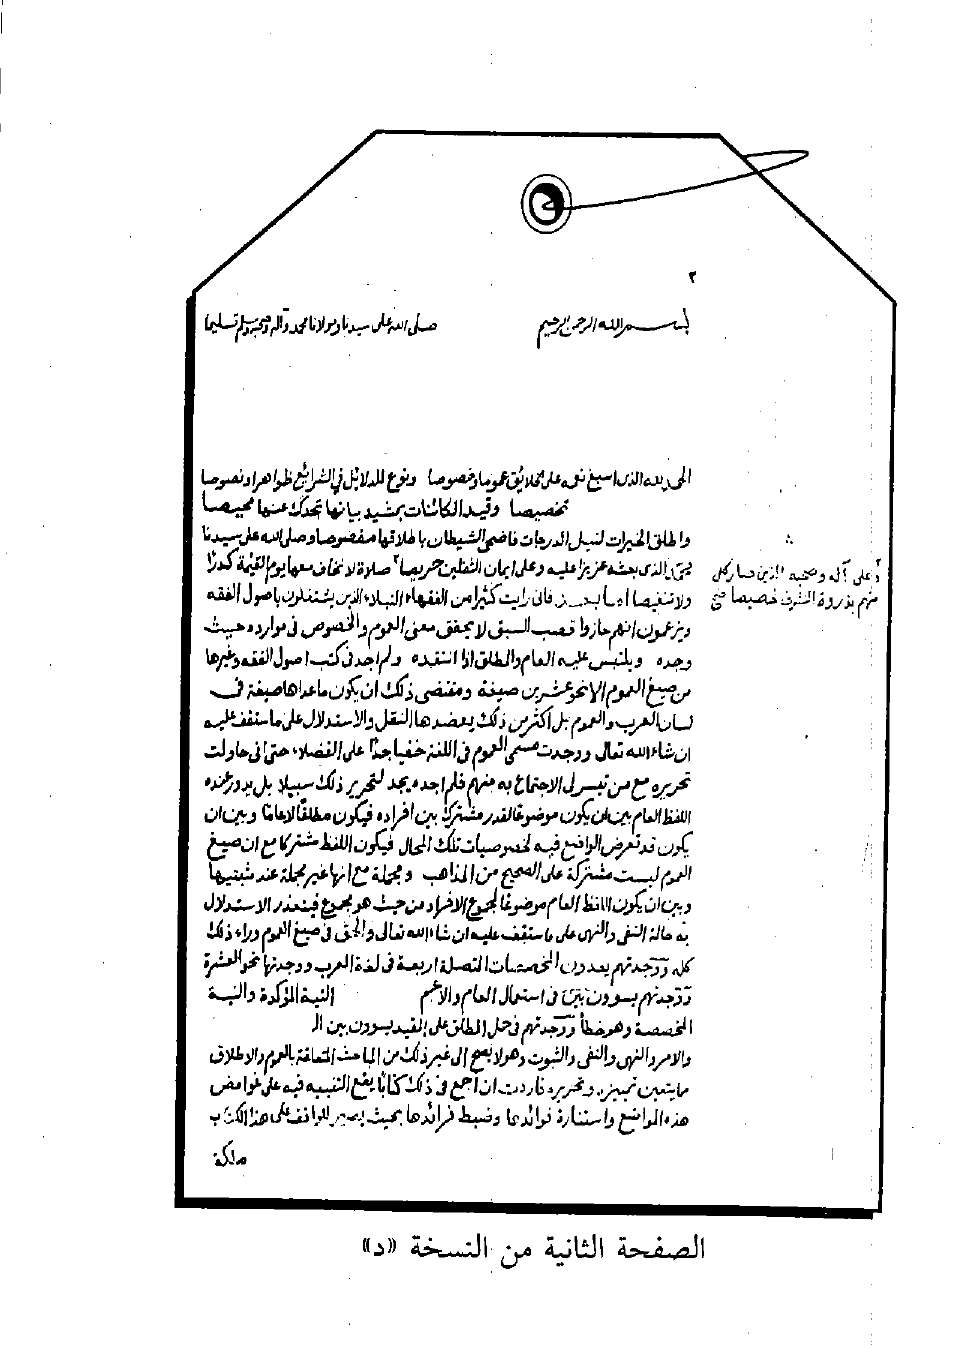 ٢
بسم الله الرحمن الرحيم صلى الله على سيدنا ومولانا محمد وآله وصحبه وسلم تسليما
الحمد لله الذى اسبغ نعمه على خلايقه عموما وخصوصا ونوع للدلايل في الشرائع ظواهر او نصوصا
تخصيصا وقيد الكائنات بمشيد بيانها تجدك عنها محيصا
واطلق الخيرات لنيل الدرجات فاضحى الشيطان باطلاقها مغصوصا وصلى الله على سيدنا
محمد الذى بعثه عزيزا عليه وعلى ايمان الثقلين حريصا صلاة لا نخاف معها يوم القيمة كدرا
ولا تنغيصا اما بعد فانى رايت كثيرا من الفقهاء النبلاء الذين يشتغلون باصول الفقه
ويزعمون انهم حازوا قصب السبق لا يحقق معنى العموم والخصوص فى موارده حيث
وجده ويلتبس عليه العام والمطلق اذا انتقده ولم اجد فى كتب اصول الفقه وغيرها
من صيغ العموم الا نحو عشرين صيغة ومقتضى ذلك ان يكون ما عداها صيغة فى
لسان العرب والعموم بل اكثر من ذلك يعضدها النقل والاستدلال على ما ستقف عليه
ان شاء الله تعالى ووجدت مسمى العموم فى اللغة خفيا جدا على الفضلاء حتى انى حاولت
تحريره مع من تيسر لى الاجتماع به منهم فلم اجده يجد لتحرير ذلك سبيلا بل يدور عنده
اللفظ العام بين ان يكون موضوعا لقدر مشترك بين افراده فيكون مطلقا لا عاما وبين ان
يكون قد تعرض الواضع فيه لخصوصيات تلك المحال فيكون اللفظ مشتركا مع ان صيغ
العموم ليست مشتركة على الصحيح من المذاهب ومجملة مع انها غير مجملة عند مثبتيها
وبين ان يكون اللفظ العام موضوعا لمجموع الافراد من حيث هو مجموع فيتعذر الاستدلال
به حالة النفى والنهى على ما ستقف عليه ان شاء الله تعالى والحق فى صيغ العموم وراء ذلك
كله ووجدتهم يعدون المخصصات المتصلة اربعة فى لغة العرب ووجدتها نحو العشرة
ووجدتهم يسوون بين فى استعمال العام والاعم النية المؤكدة والنية
المخصصة وهو خطأ ووجدتهم فى حمل المطلق على المقيد يسوون بين الـ
والامر والنهى والنفى والثبوت وهو لا يصح الى غير ذلك من المباحث المتعلقة بالعموم والاطلاق
ما يتعين تمييزه وتحريره فاردت ان اجمع فى ذلك كتابا يقع التنبيه فيه على غوامض
هذه المواضع واستنارة فوائدها وضبط فرائدها بحيث يصير للواقف على هذا الكتاب
ملكة
وعلى آله وصحبه الذين صار كل
منهم بذروة الشرف خصيصا صح
الصفحة الثانية من النسخة «د»